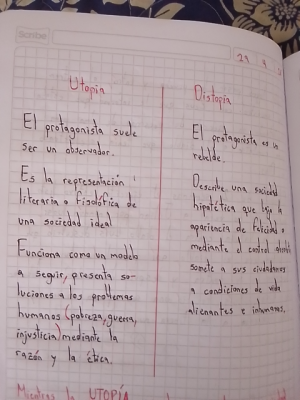 Scribe
29 9
Utopía
El protagonista suele
ser un observador.
Es la representación
literaria o fisolófica de
una sociedad ideal
Funciona como un modelo
a seguir, presenta so-
luciones a los problemas
humanos (pobreza, guerra,
injusticia) mediante la
razón y la ética.
Distopía
El protagonista es un
rebelde.
Describe una sociedad
hipotética que bajo la
apariencia de felicidad o
mediante el control
somete a sus ciudadanos
a condiciones de vida
alienantes e inhumanas.
Mientras la UTOPÍA